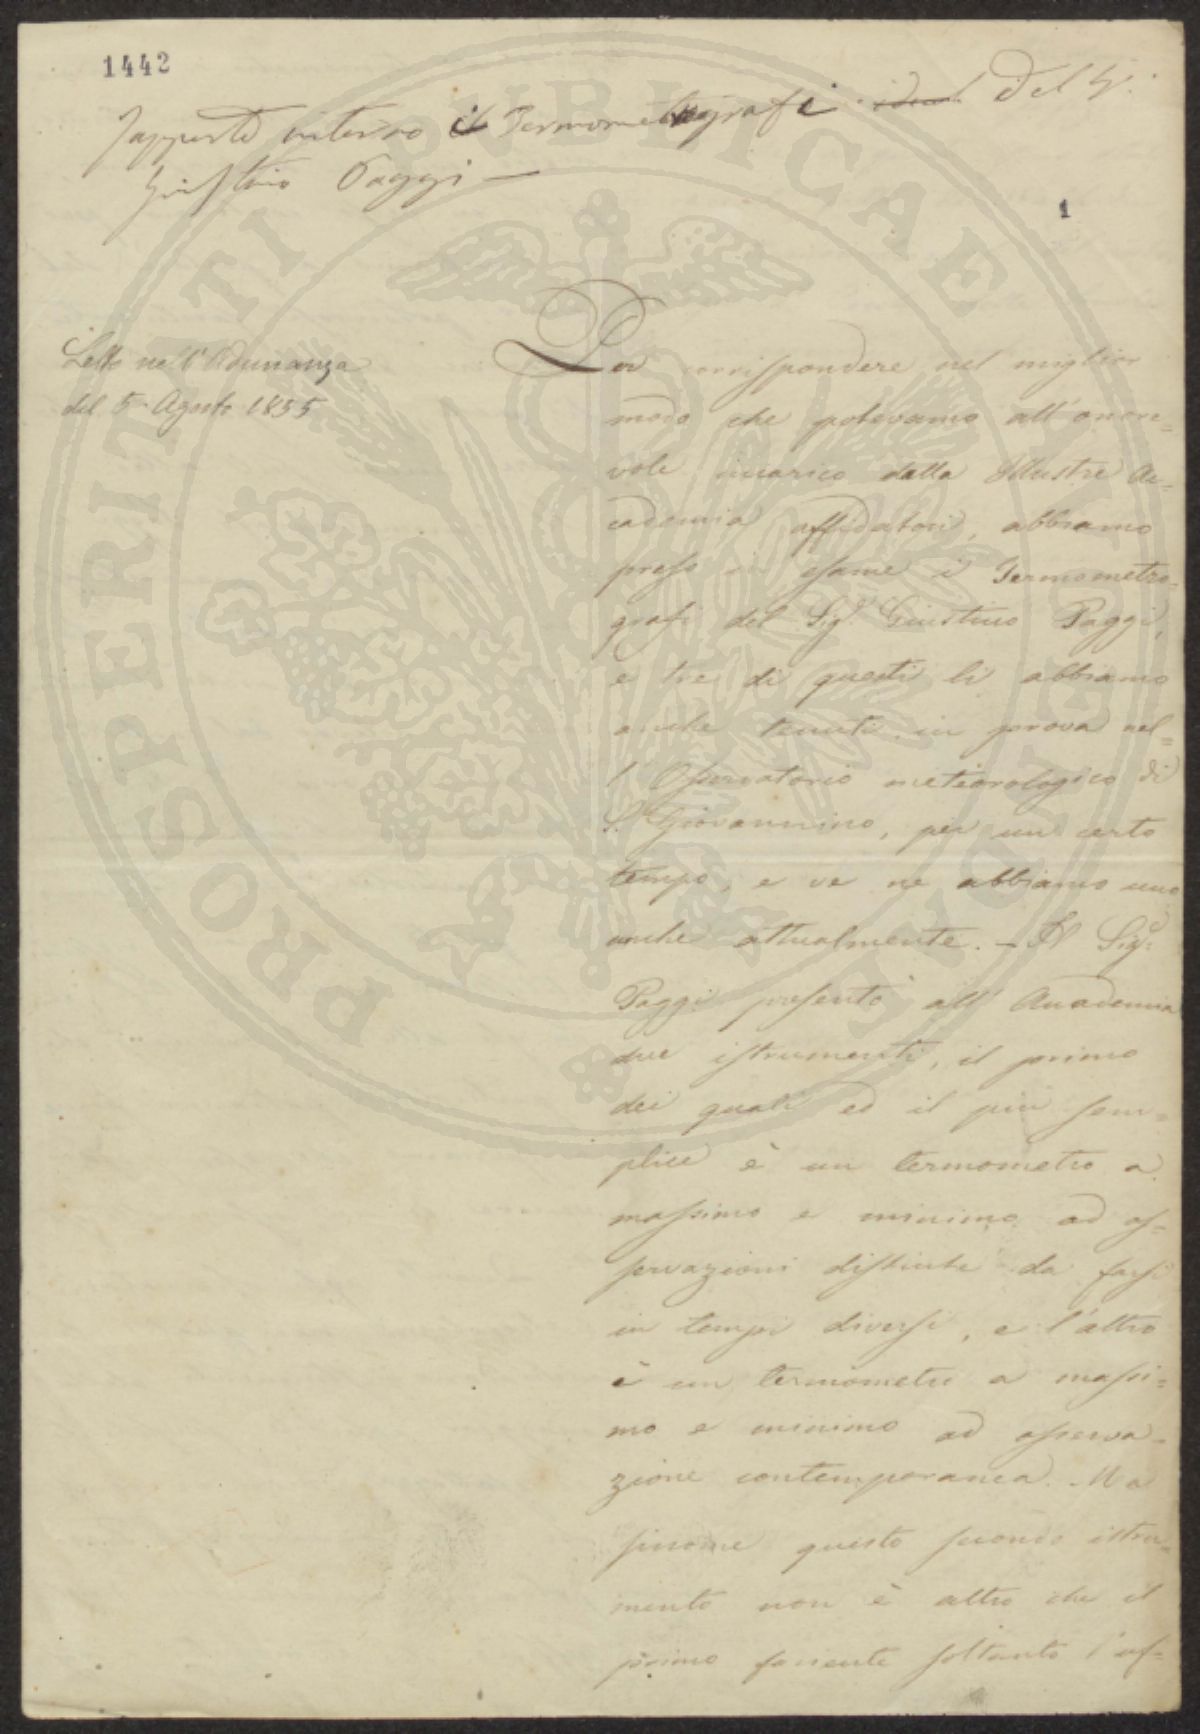 1442
Rapporto intorno ai Termometrografi del S.r
Giustino Paggi —
1
Letto nell'Adunanza
del 5. Agosto 1855
Per corrispondere nel miglior
modo che potevamo all'onore=
vole incarico dalla Illustre Ac=
cademia affidatoci, abbiamo
preso in esame i Termometro-
grafi del Sig.r Giustino Paggi,
e tre di questi li abbiamo
anche tenuti in prova nel=
l'Osservatorio meteorologico di
S. Giovannino, per un certo
tempo, e ve ne abbiamo uno
anche attualmente. — Il Sig.r
Paggi presentò all'Accademia
due istrumenti, il primo
dei quali ed il più sem=
plice è un termometro a
massimo e minimo ad os=
servazioni distinte da farsi
in tempi diversi, e l'altro
è un termometro a massi=
mo e minimo ad osserva=
zione contemporanea. Ma
siccome questo secondo istru=
mento non è altro che il
primo facente soltanto l'uf=
PROSPERITATI PUBLICAE AUGENDAE